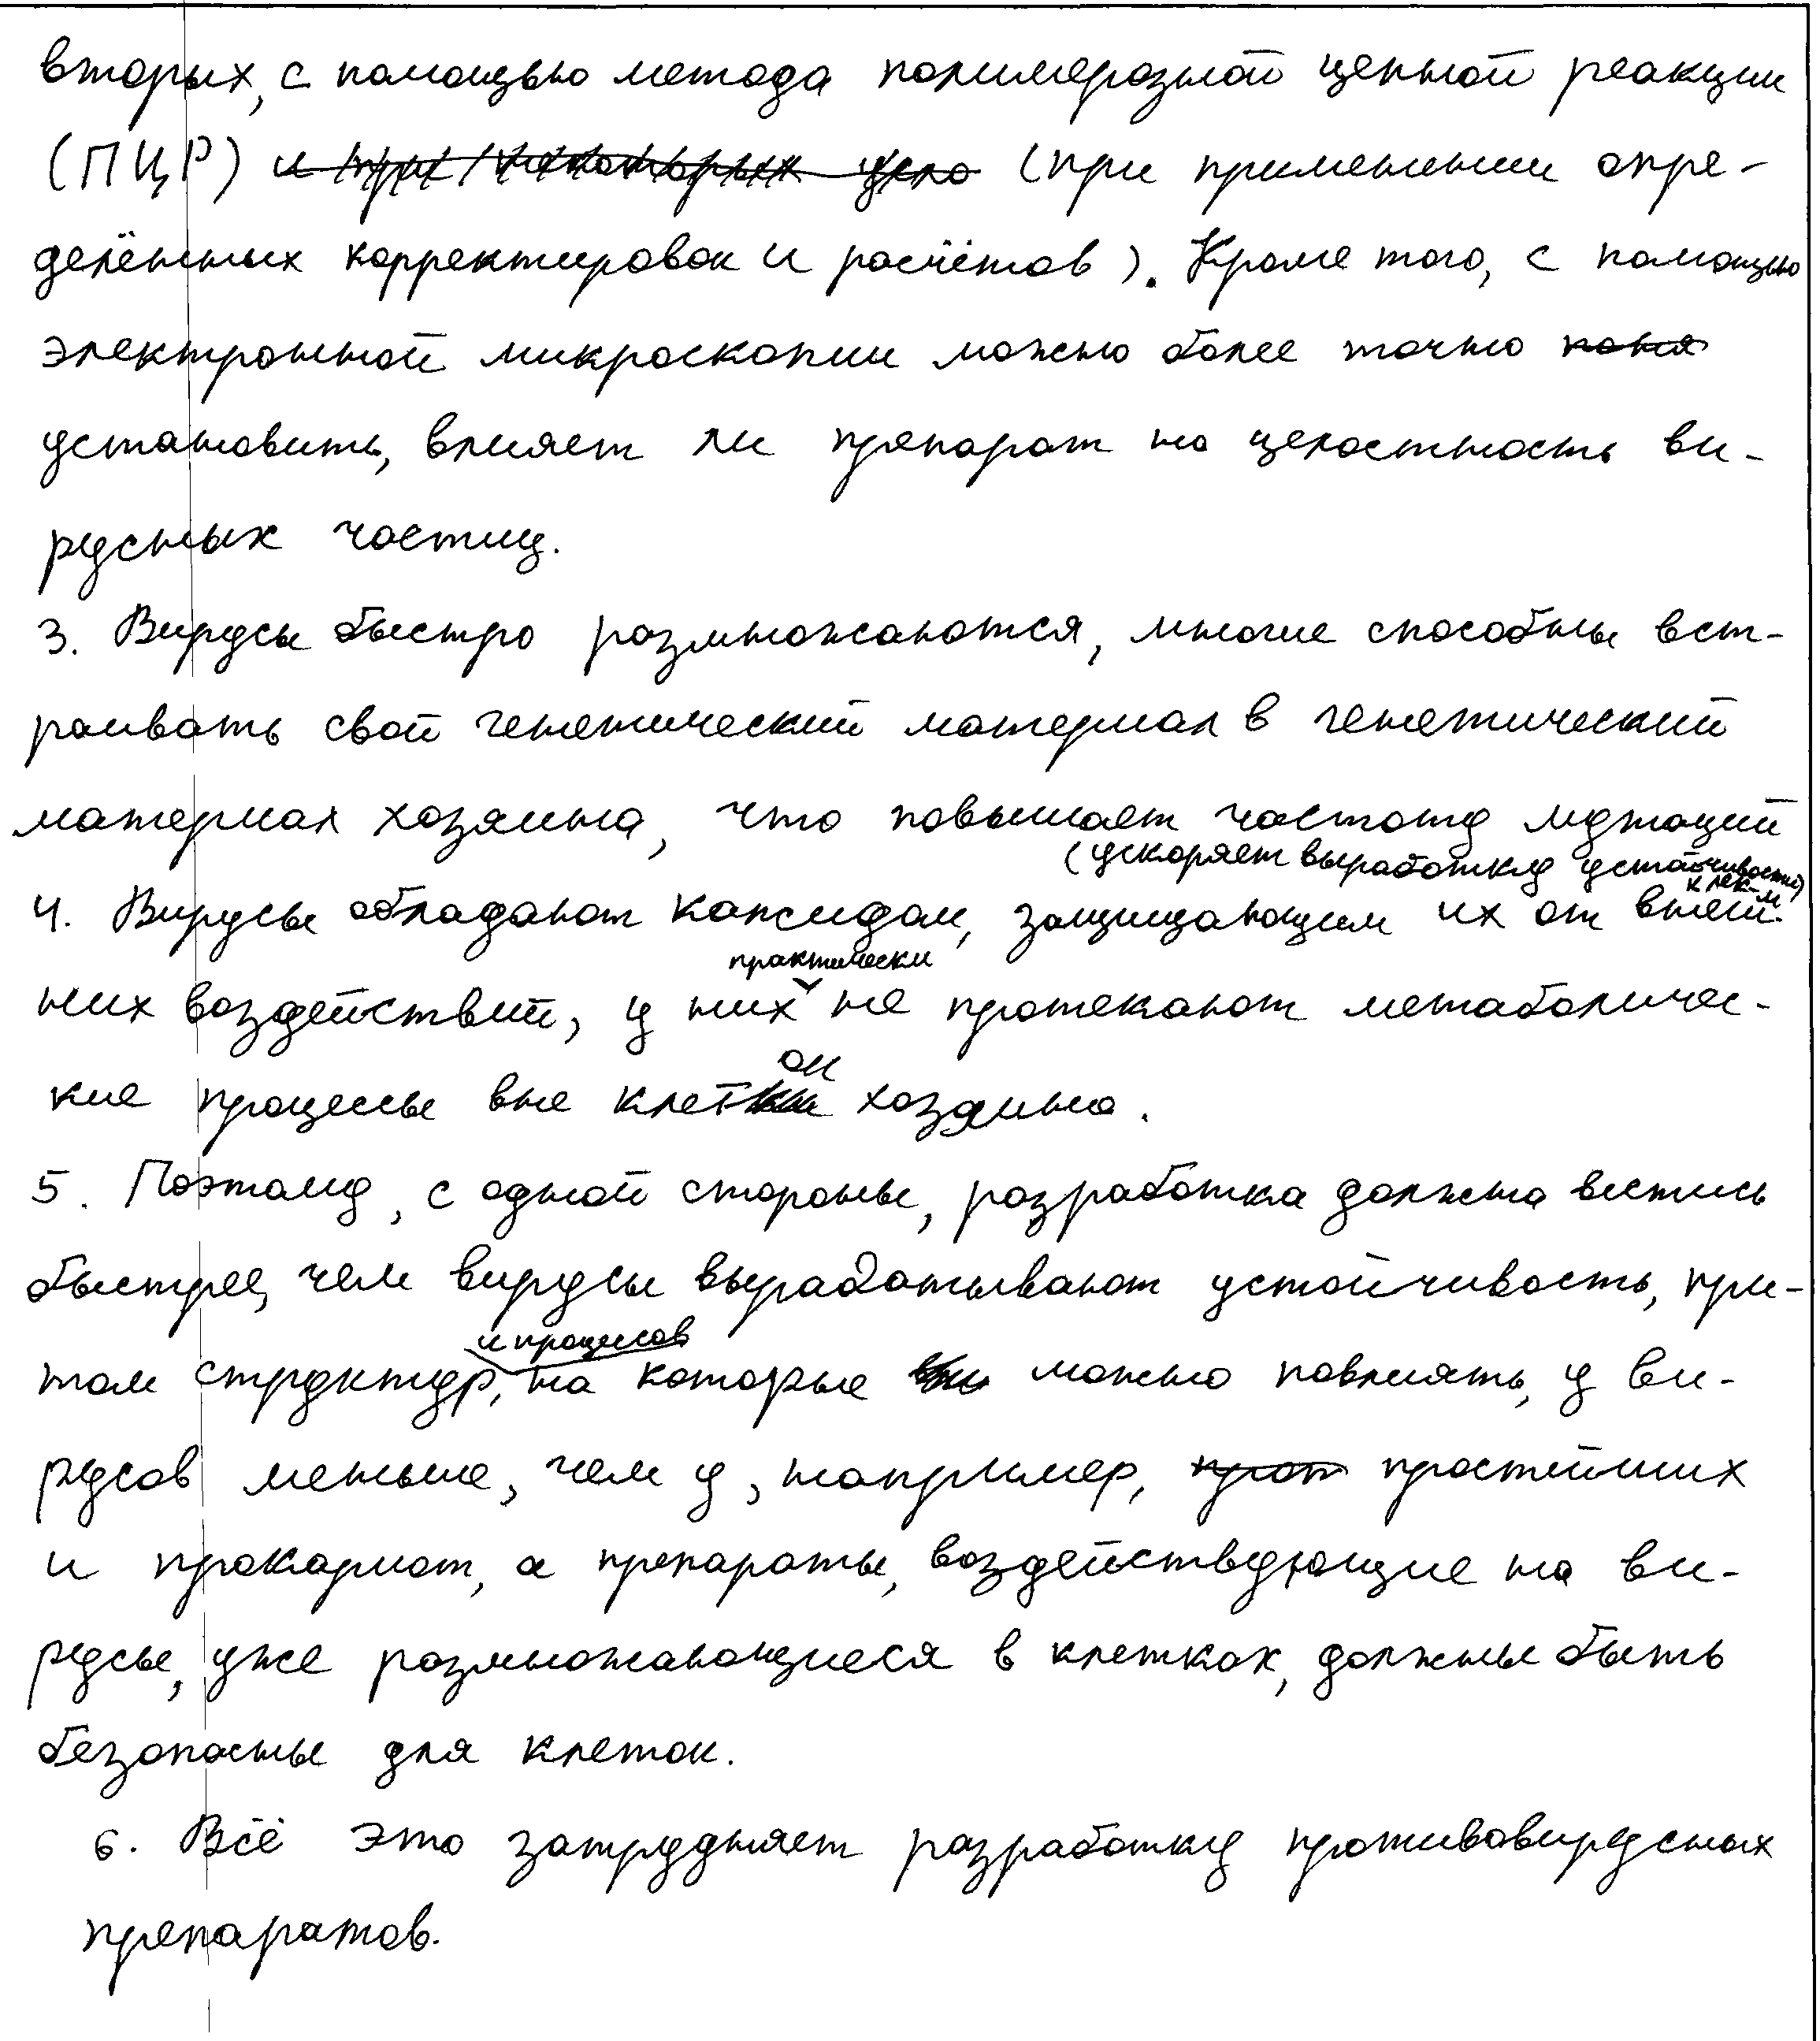 вторых, с помощью метода полимеразной цепной реакции
(ПЦР) (при применении опре-
делённых корректировок и расчётов). Кроме того, с помощью
электронной микроскопии можно более точно
установить, влияет ли препарат на целостность ви-
русных частиц.
3. Вирусы быстро размножаются, многие способны вст-
раивать свой генетический материал в генетический
материал хозяина, что повышает частоту мутаций
(ускоряет выработку устойчивости)
к лек-м
4. Вирусы обладают капсидом, защищающим их от внеш-
практически
них воздействий, у них не протекают метаболичес-
ок
кие процессы вне клет хозяина.
5. Поэтому, с одной стороны, разработка должна вестись
быстрее, чем вирусы вырабатывают устойчивость, при-
и процессов
том структур, на которые можно повлиять, у ви-
русов меньше, чем у, например, простейших
и прокариот, а препараты, воздействующие на ви-
русы, уже размножающиеся в клетках, должны быть
безопасны для клеток.
6. Всё это затрудняет разработку противовирусных
препаратов.